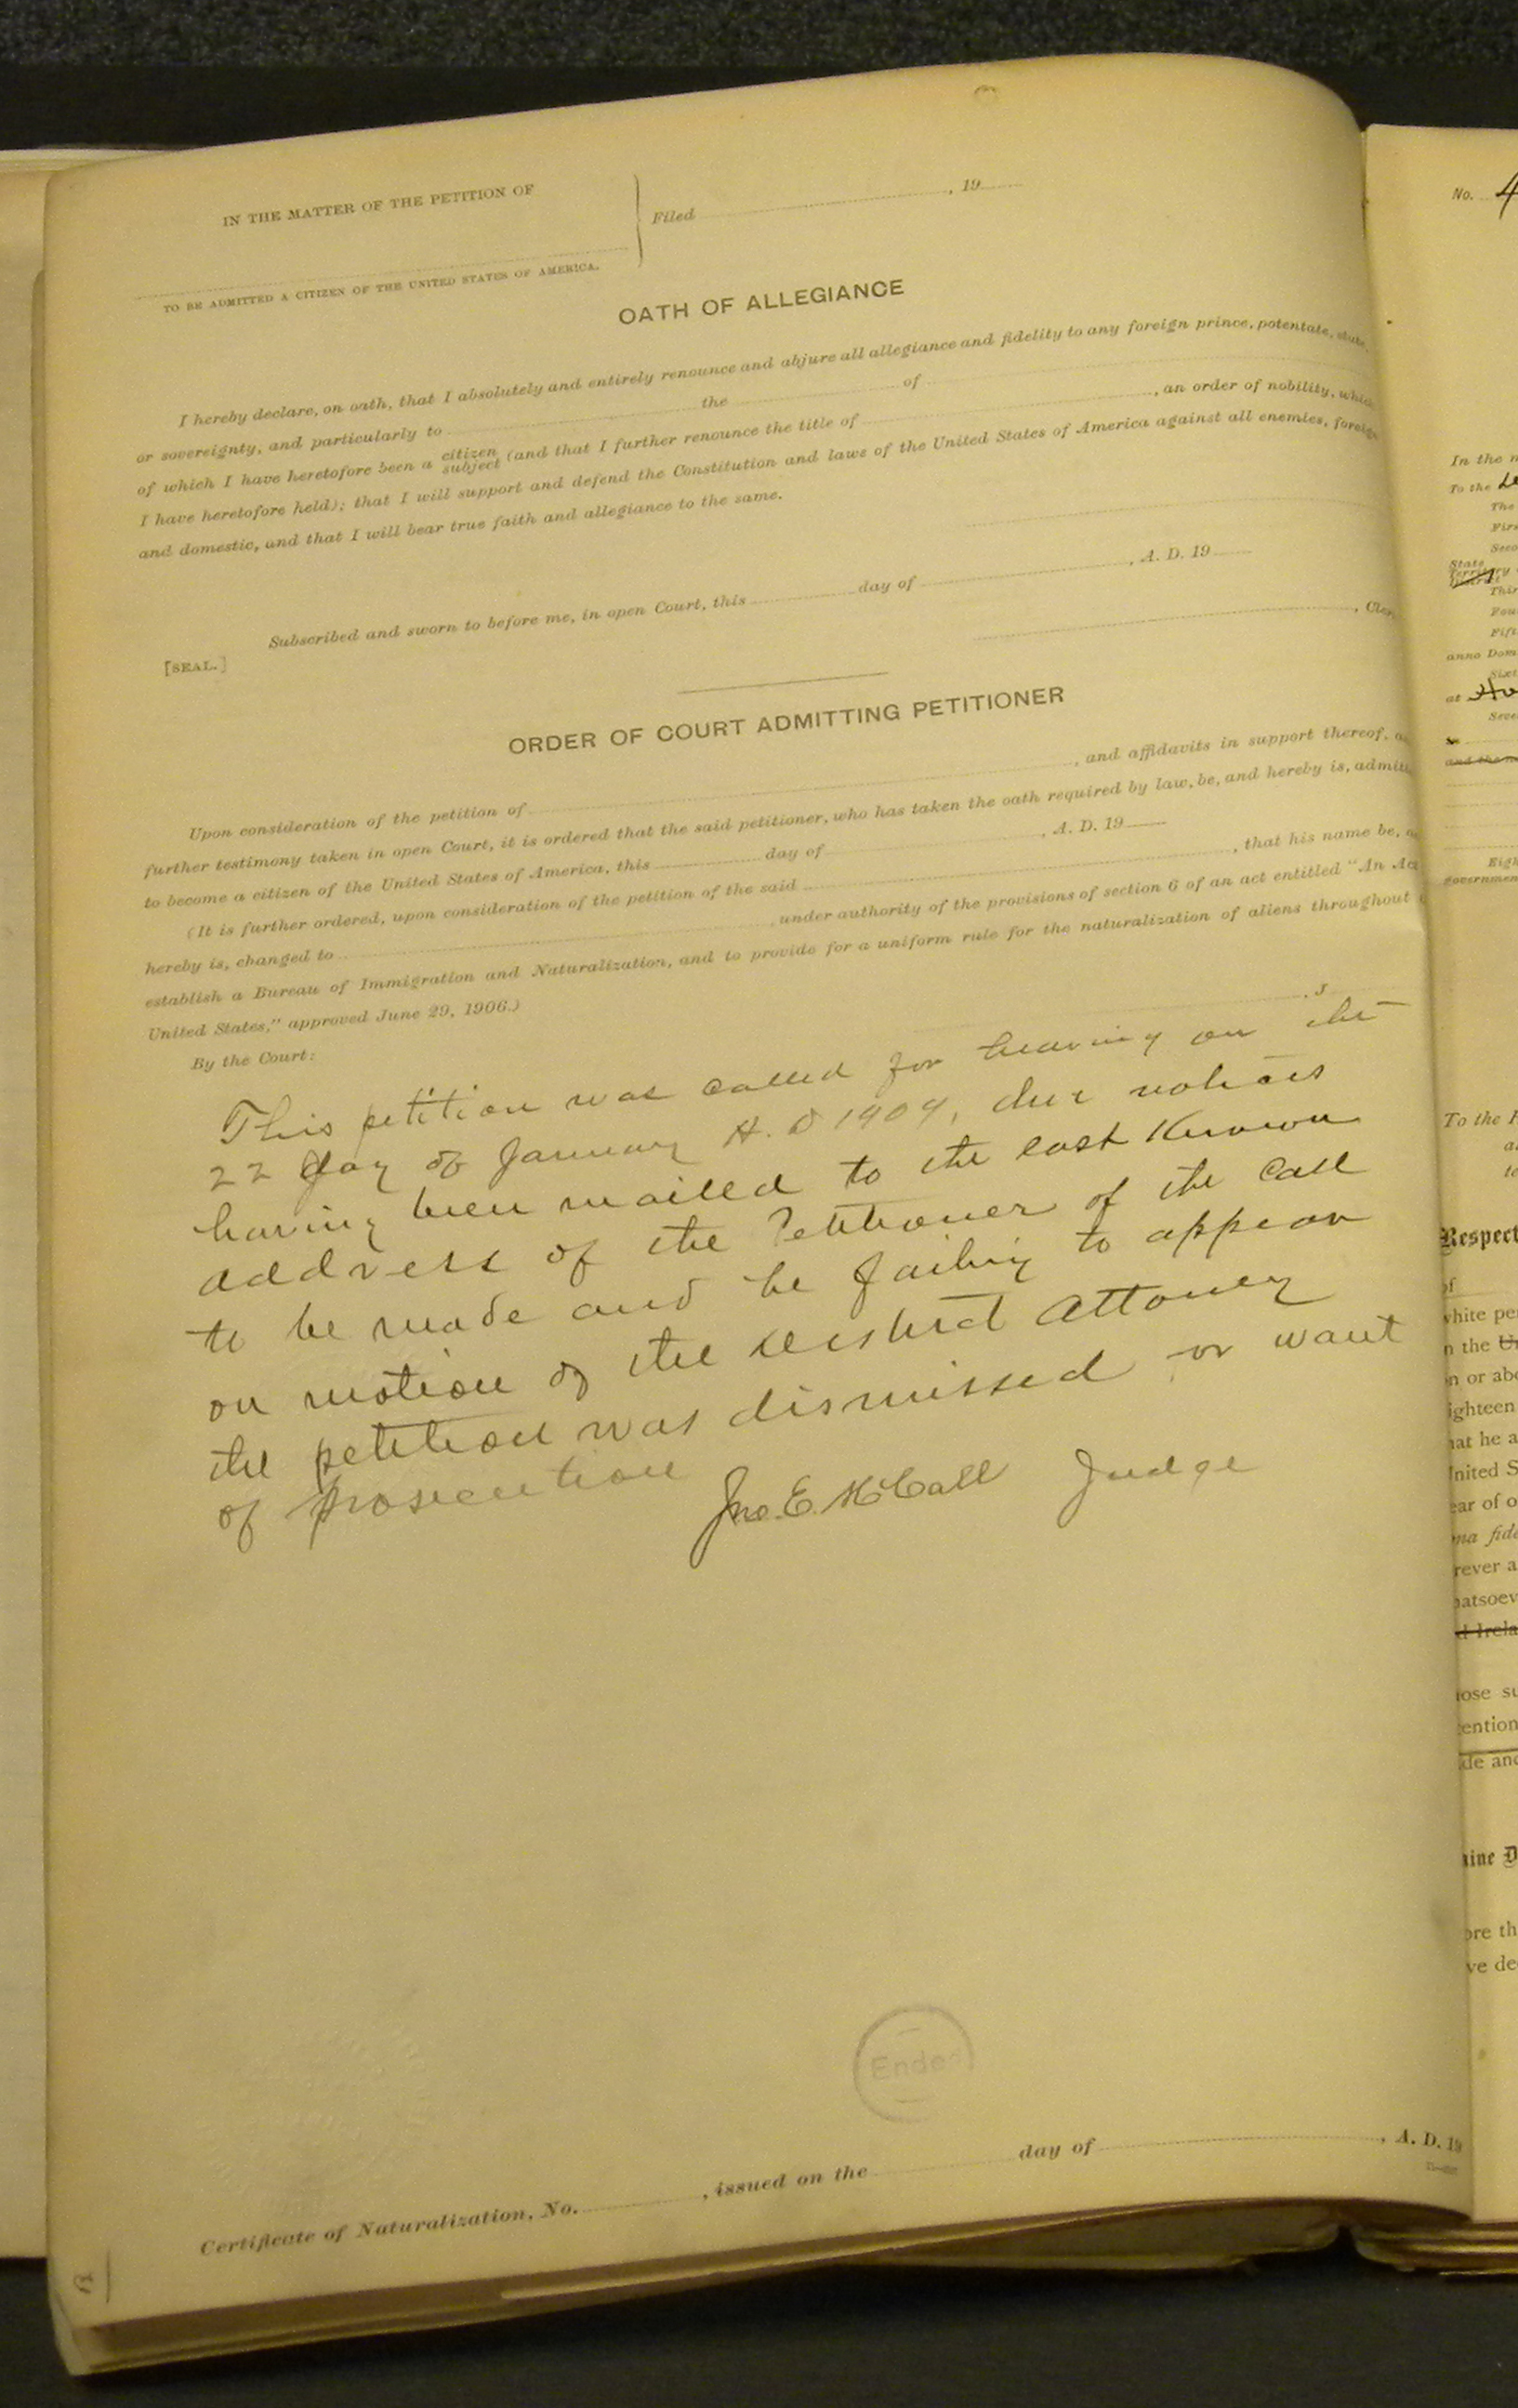 IN THE MATTER OF THE PETITION OF
Filed , 19
TO BE ADMITTED A CITIZEN OF THE UNITED STATES OF AMERICA.
OATH OF ALLEGIANCE
I hereby declare, on oath, that I absolutely and entirely renounce and abjure all allegiance and fidelity to any foreign prince, potentate, state,
or sovereignty, and particularly to the of
of which I have heretofore been a citizen subject (and that I further renounce the title of , an order of nobility, which
I have heretofore held); that I will support and defend the Constitution and laws of the United States of America against all enemies, foreign
and domestic, and that I will bear true faith and allegiance to the same.
Subscribed and sworn to before me, in open Court, this day of , A. D. 19
[SEAL.] , Cler
ORDER OF COURT ADMITTING PETITIONER
Upon consideration of the petition of , and affidavits in support thereof, a
further testimony taken in open Court, it is ordered that the said petitioner, who has taken the oath required by law, be, and hereby is, admitt
to become a citizen of the United States of America, this day of , A. D. 19
(It is further ordered, upon consideration of the petition of the said , that his name be, a
hereby is, changed to , under authority of the provisions of section 6 of an act entitled "An Act
establish a Bureau of Immigration and Naturalization, and to provide for a uniform rule for the naturalization of aliens throughout
United States," approved June 29, 1906.)
By the Court: , J
This petition was called for hearing on the
22 day of January A. D 1909, due notices
having been mailed to the last known
address of the Petitioner of the call
to be made and he failing to appear
on motion of the District Attorney
the petition was dismissed for want
of prosecution
Jno. E. McCall Judge
Ended
Certificate of Naturalization, No. , issued on the day of , A. D. 19
No. 4
In the m
To the
The
Firs
Seco
State
Territory
Thir
Four
Fift
anno Dom
Sixt
at Ho
Seve
and the
Eigh
government
To the H
a
to
Respect
of
white per
n the
n or abo
ighteen
hat he a
United S
ear of o
na fide
rever a
hatsoev
d Irela
ose su
ention
de and
nine D
ore th
ve de